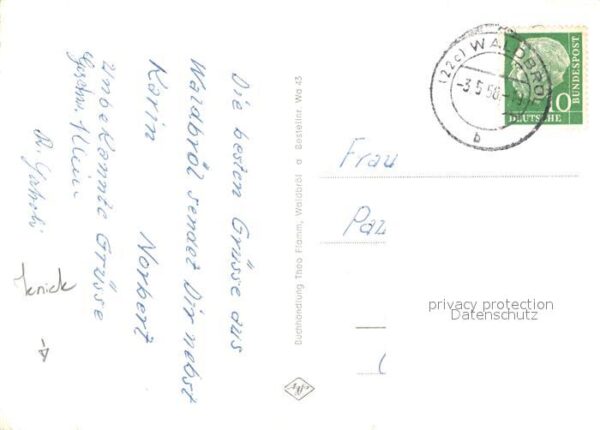 Die besten Grüsse aus
Waldbröl sendet Dir nebst
Karin Norbert
Unbekannte Grüsse
Klein
Knick
Buchhandlung Theo Flamm, Waldbröl a Bestellnr. Wa 43
(22c) WALDBRÖL
-3.5.58.-19
b
10
DEUTSCHE BUNDESPOST
Frau
Paz
privacy protection
Datenschutz